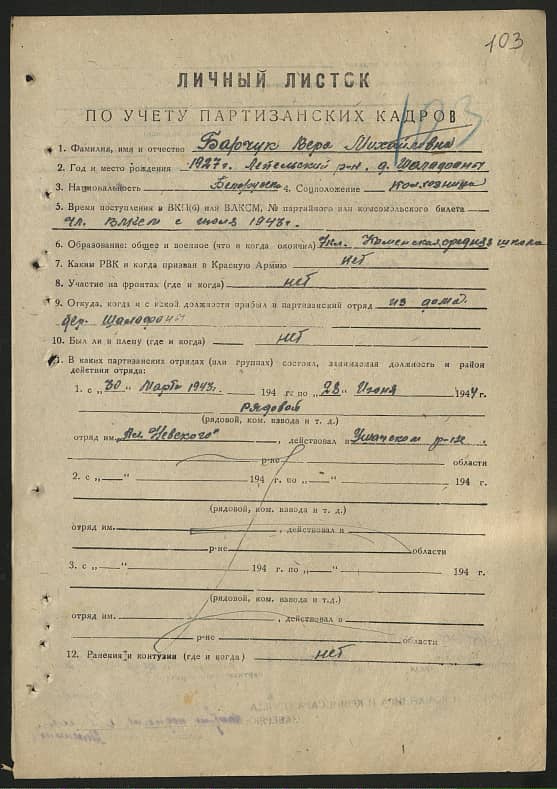 103
ЛИЧНЫЙ ЛИСТОК
ПО УЧЕТУ ПАРТИЗАНСКИХ КАДРОВ
1. Фамилия, имя и отчество Барчук Вера Михайловна
2. Год и место рождения 1927 г. Лепельский р-н. д. Шаладоны
3. Национальность Белоруска 4. Соцположение колхозница
5. Время поступления в ВКП(б) или ВЛКСМ, № партийного или комсомольского билета
чл. ВЛКСМ с июля 1943 г.
6. Образование: общее и военное (что и когда окончил) 7 кл. Каменская средняя школа
7. Каким РВК и когда призван в Красную Армию нет
8. Участие на фронтах (где и когда) нет
9. Откуда, когда и с какой должности прибыл в партизанский отряд из дома.
дер. Шаладоны
10. Был ли в плену (где и когда) нет
11. В каких партизанских отрядах (или группах) состоял, занимаемая должность и район
действия отряда:
1. с „30" Марта 1943. 194 г по „28" Июня 1944 г.
рядовой
(рядовой, ком. взвода и т. д.)
отряд им. Ал. Невского", действовал в Ушачском р-не.
р-не области
2. с „—" 194 г. по „—" 194 г.
(рядовой, ком. взвода и т. д.)
отряд им. , действовал в
р-не области
3. с „—" 194 г. по „—" 194 г.
(рядовой, ком. взвода и т. д.)
отряд им. , действовал в
р-не области
12. Ранения и контузии (где и когда) нет